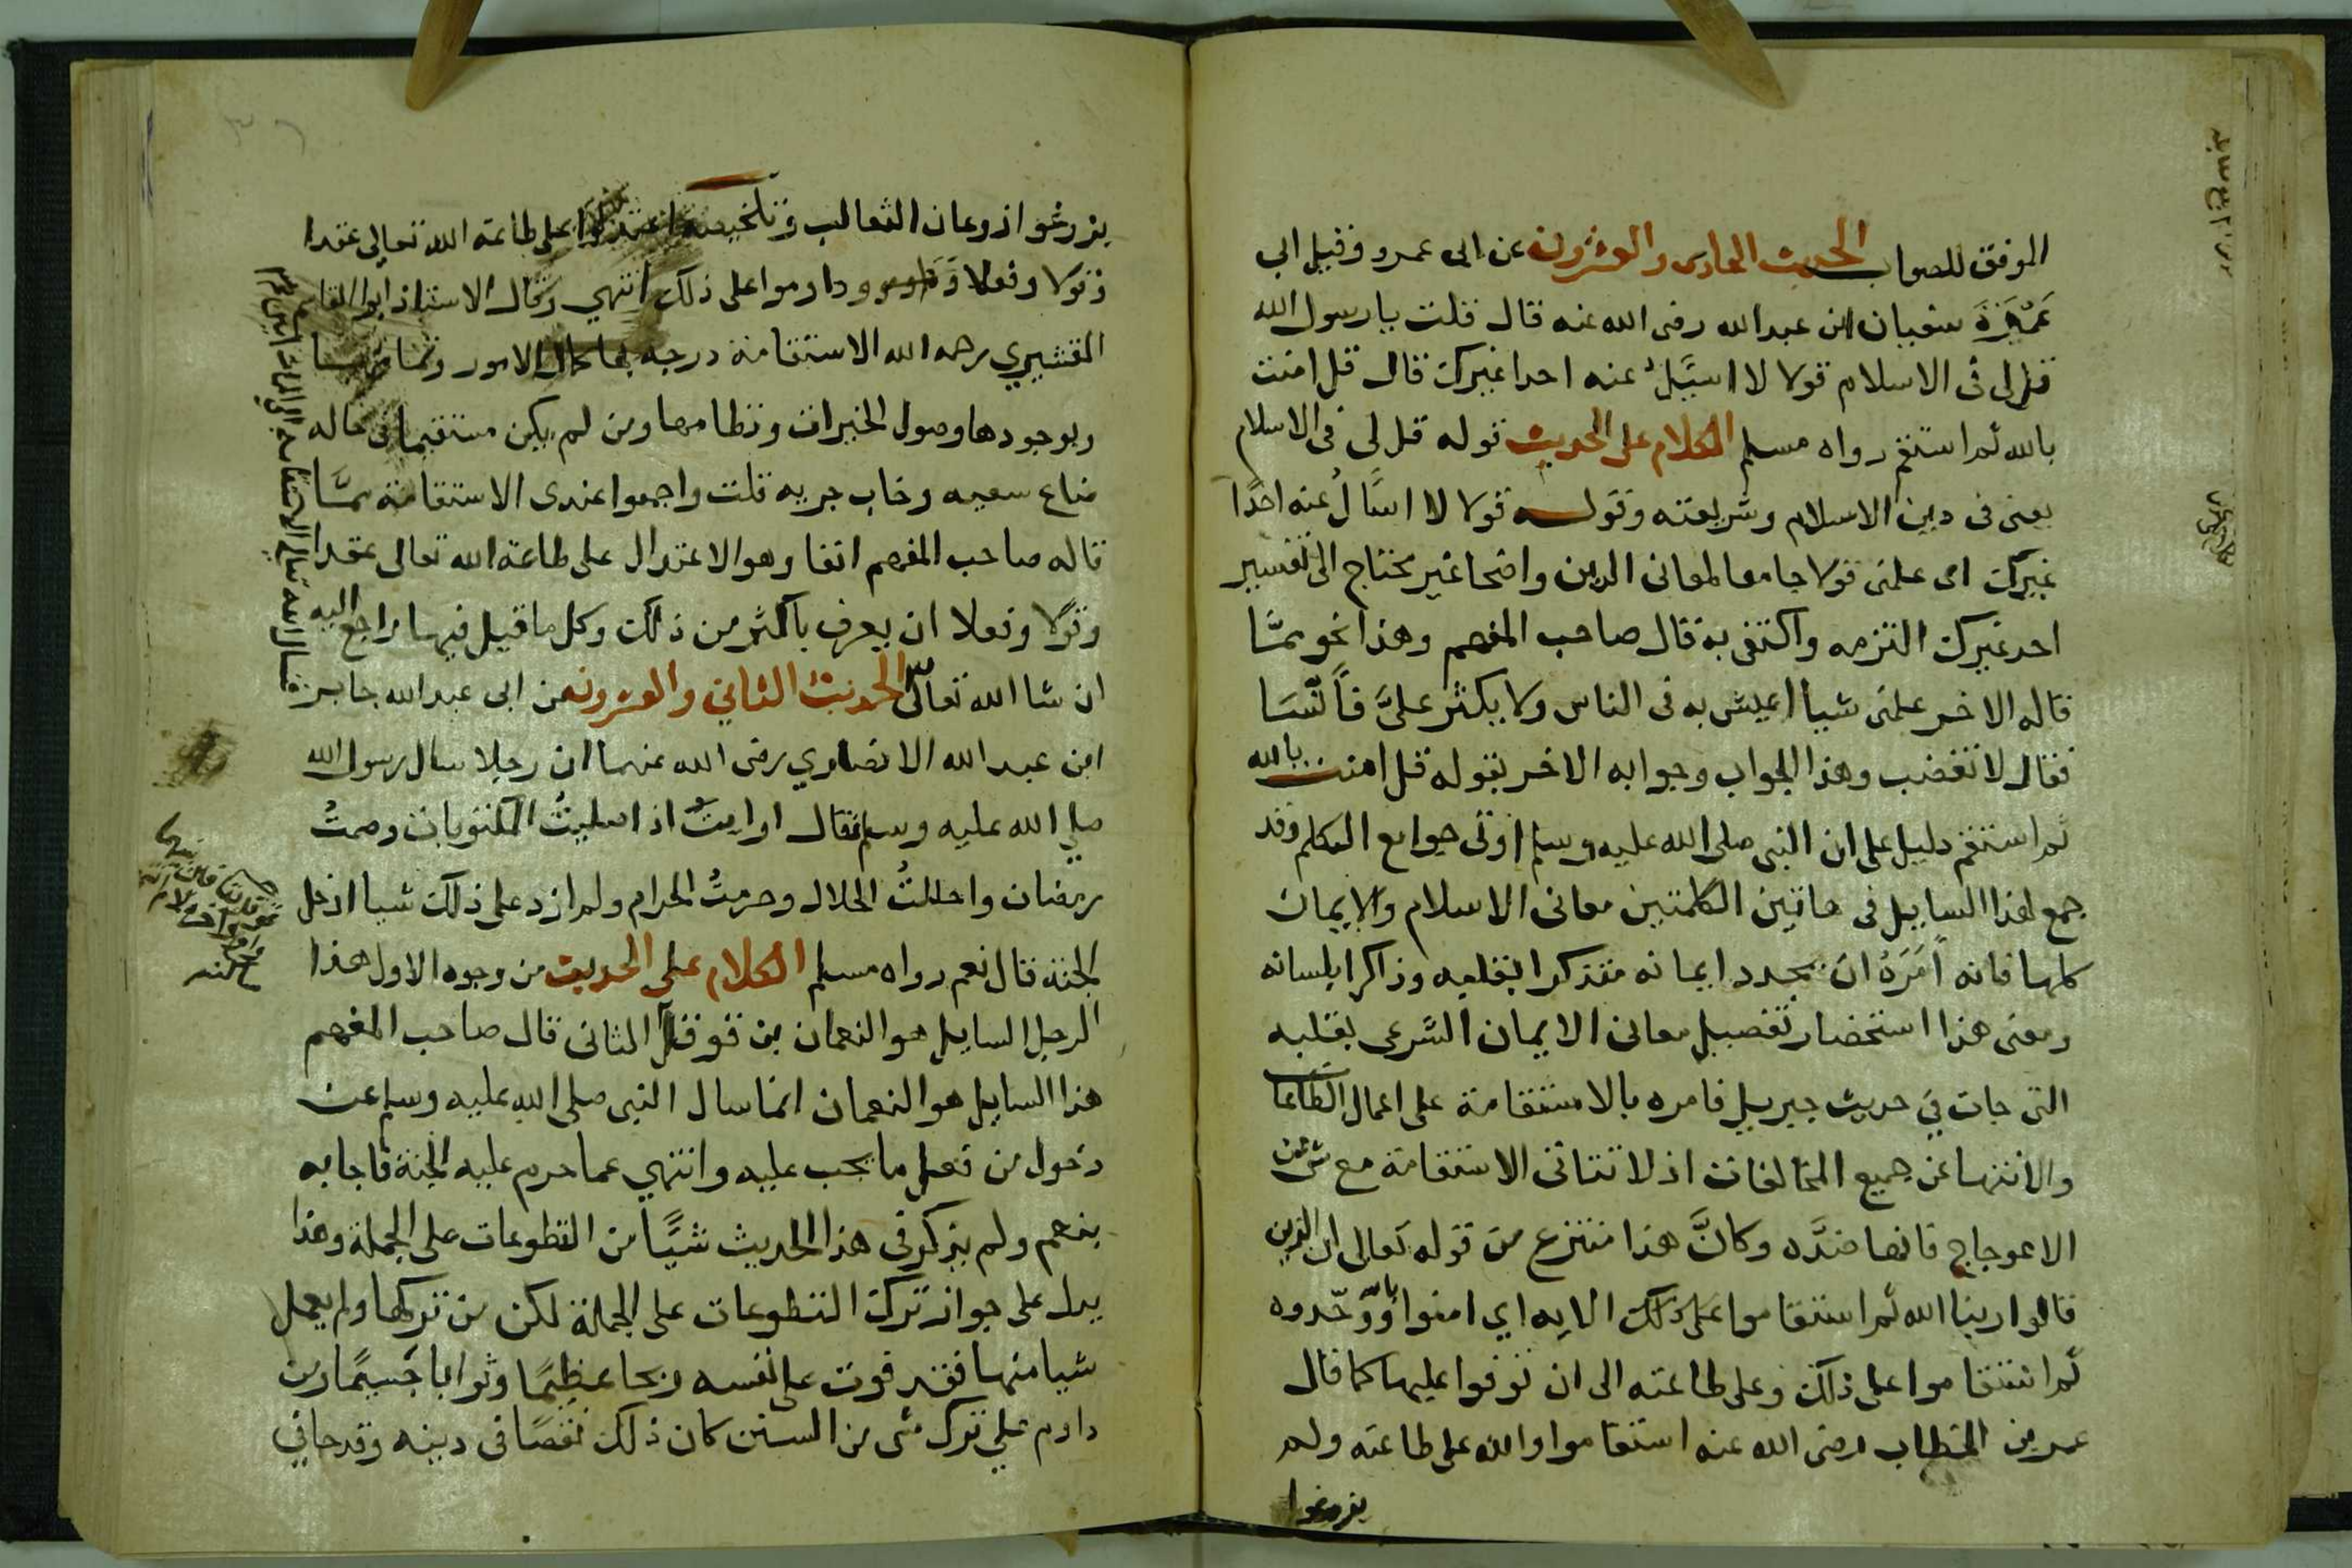 الموفق للصواب الحديث الحادى والعشرون عن ابى عمرو وقيل ابى
عَمْرَةَ سفيان ابن عبدالله رضى الله عنه قال قلت يا رسول الله
قل لى فى الاسلام قولا لا اسيَل عنه احدا غيرك قال قل امنت
بالله ثم استقم رواه مسلم الكلام على الحديث قوله قل لى فى الاسلام
يعنى فى دين الاسلام وشريعته وقوله قولا لا اسَّالُ عنه احدًا
غيرك اى علمنى قولا جامعا لمعانى الدين واضحا غير محتاج الى تفسير
احد غيرك التزمه واكتفى به قال صاحب المفهم وهذا نحو ممَّا
قاله الاخر علمنى شيأ اعيش به فى الناس ولا يكثر علىَّ فأنسَا
فقال لا تغضب وهذا الجواب وجوابه الاخر بقوله قل امنت بالله
ثم استقم دليل على ان النبى صلى الله عليه وسلم اوتى جوامع الكلم وقد
جمع لهذا السايل فى هاتين الكلمتين معانى الاسلام والايمان
كلها فانه أمَرَهُ ان يجدد ايمانه متذكرا بقلبه وذاكرا بلسانه
ومعنى هذا استحضار تفصيل معانى الايمان الشرعى بقلبه
التى جات فى حديث جبريل فامره بالاستقامة على اعمال الطاعات
والانتها عن جميع المخالفات اذ لا تتاتى الاستقامة مع شى من
الاعوجاج فانها ضدَّه وكانَّ هذا منتزع من قوله تعالى ان الذين
قالوا ربنا الله ثم استقاموا على ذلك الايه اي امنوا بالله ووحّدوه
ثم استقاموا على ذلك وعلى طاعته الى ان توفوا عليها كما قال
عمر بن الخطاب رضى الله عنه استقاموا والله على طاعته ولم
يزوغوا
يزوغوا زوغان الثعالب وتلخيصه اعتدلوا على طاعة الله تعالى عقدا
وقولا وفعلا وداوموا على ذلك انتهي وقال الاستاذ ابوا القاسم
القشيري رحمه الله الاستقامة درجه بها كمال الامور وتمامها
وبوجودها وصول الخيرات ونظامها ومن لم يكن مستقيما فى حاله
ضاع سعيه وخاب جريه قلت واجمعوا عندى الاستقامة ممَّا
قاله صاحب المفهم انفا وهو الاعتدال على طاعة الله تعالى عقدا
وقولا وفعلا ان يعرف باكثر من ذلك وكل ما قيل فيها راجع اليه
ان شا الله تعالى الحديث الثاني والعشرون عن ابى عبد الله جابر
ابن عبد الله الانصاري رضى الله عنهما ان رجلا سال رسول الله
صلي الله عليه وسلم فقال ارايتُ اذا صليتُ المكتوبات وصمتُ
رمضان واحللتُ الحلال وحرمتُ الحرام ولم ازد على ذلك شيا ادخل
الجنة قال نعم رواه مسلم الكلام على الحديث من وجوه الاول هذا
الرجل السايل هو النعمان بن قوقل الثانى قال صاحب المفهم
هذا السايل هو النعمان انما سال النبى صلى الله عليه وسلم عن
دخول من فعل ما يجب عليه وانتهي عما حرم عليه الجنة فاجابه
بنعم ولم يذكر فى هذا الحديث شيًا من التطوعات على الجملة وهذا
يدل على جواز ترك التطوعات على الجملة لكن من تركها ولم يعمل
شيا منها فقد فوت على نفسه ربحا عظيمًا وثوابا جَسيمًا ومن
داوم علي ترك شى من السنن كان ذلك نقصًا فى دينه وقد جا فى